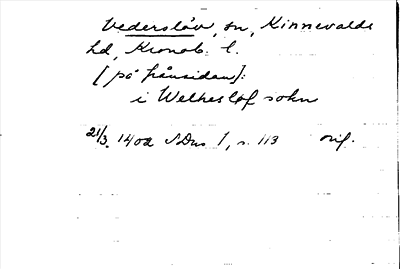 Vederslöv, sn, Kinnevalds
hd, Kronob. l.
[på frånsidan]:
i Welheslöf sokn
21/3. 1402 SDns 1, s. 113 orig.